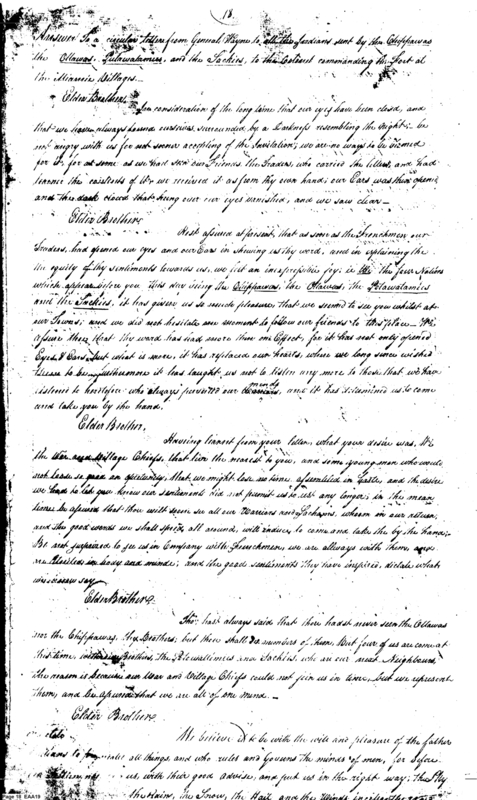 18.
Answer To a circular letter from General Wayne to all the Indians sent by the Chippawas
the Ottawas, Putawatamies, and the Sackies, to the Colonel commanding the Fort at
the Miamie Villages.
Elder Brother,
In consideration of the long time that our eyes have been closed, and
that we have always found ourselves surrounded by a Darkness resembling the Night; be
not angry with us for not sooner accepting of the Invitation; we are no ways to be blamed
for it, for as soon as we had seen our Friends the Traders, who carried the letters, and had
learnt the contents of it we received it as from thy own hand; our Ears was then opened
and the dark cloud that hung over our eyes vanished, and we saw clear—
Elder Brother
Rest assured at present, that as soon as the Frenchmen our
Traders, had opened our eyes and our Ears in shewing us thy word, and in explaining the
the equity of thy sentiments towards us, we felt an inexpressible joy; in the four Nations
which appear before you this day being the Chippawas, the Ottawas, the Putawatamies
and the Sackies, it has given us so much pleasure, that we seemed to see you whilst at
our Towns; and we did not hesitate one moment to follow our friends to this place— We
assure thee that thy word has had more than one Effect, for it has not only opened
Eyes & Ears, but what is more, it has replaced our hearts, where we long since wished
them to be, furthermore it has taught us not to listen any more to those that we have
listened to heretofore who always perverted our minds, and it has determined us to come
and take you by the hand.
Elder Brother,
Having learnt from your letter, what your desire was, We
the War and Village Chiefs, that live the nearest to you, and some young men who would
not loose so good an opportunity, that we might lose no time, assembled in haste, and the desire
we had to let you know our sentiments did not permit us to wait any longer; in the mean
time be assured that thou wilt soon see all our Warriors and Sachems, whom in our return,
and the good words we shall speak all around, will induce to come and take the by the hand;
Be not surprised to see us in Company with Frenchmen, we are allways with them,
are United in body and minds; and the good sentiments they have inspired, dictate what
we now say
Elder Brother
Thou hast always said that thou hadst never seen the Ottawas
nor the Chippawas thy Brothers; but thou shall see numbers of them, But four of us are come at
this time, with our Brothers, the Putawatimies and Sackies, who are our next Neighbours
the reason is because our War and Village Chiefs could not join us in time, but we represent
them, and be assured that we are all of one mind.—
Elder Brother
We believe it to be with the will and pleasure of the father
all things, and who rules and Governs the minds of men, for
us, with their good advise, and put us in the right way; the Sky
the Rain, the Snow, the Hail and the Winds